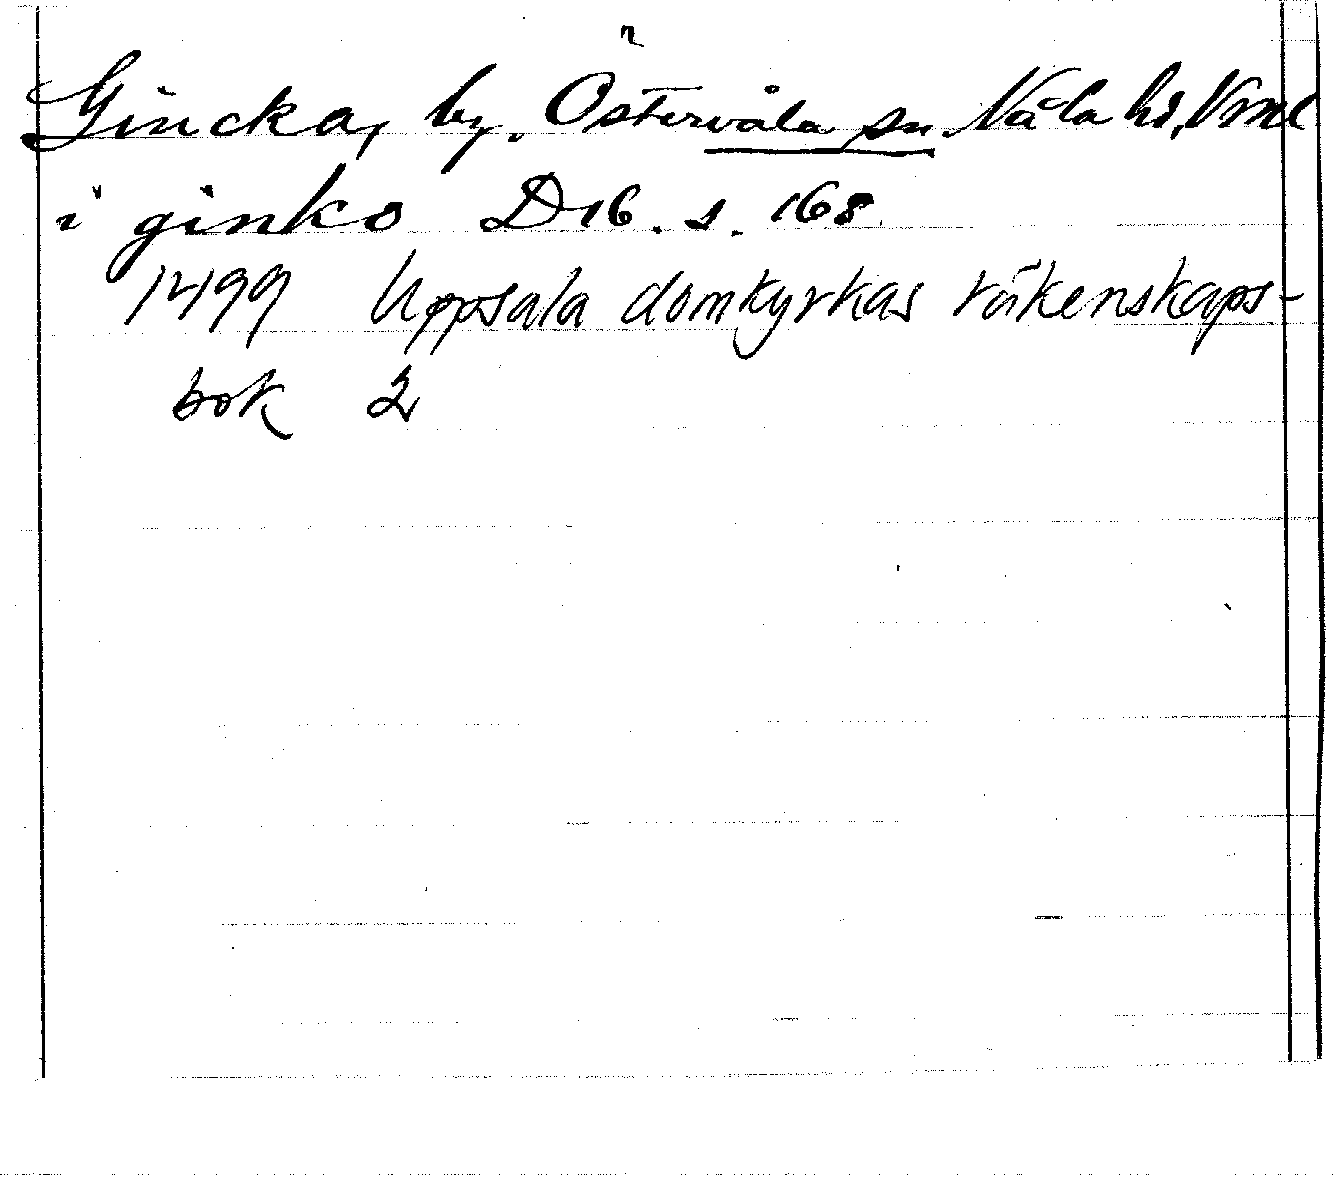 Gincka, by. Östervåla sn. Våla hd, Vml
i ginko D 16. s. 168.
1499 Uppsala domkyrkas räkenskaps-
bok 2